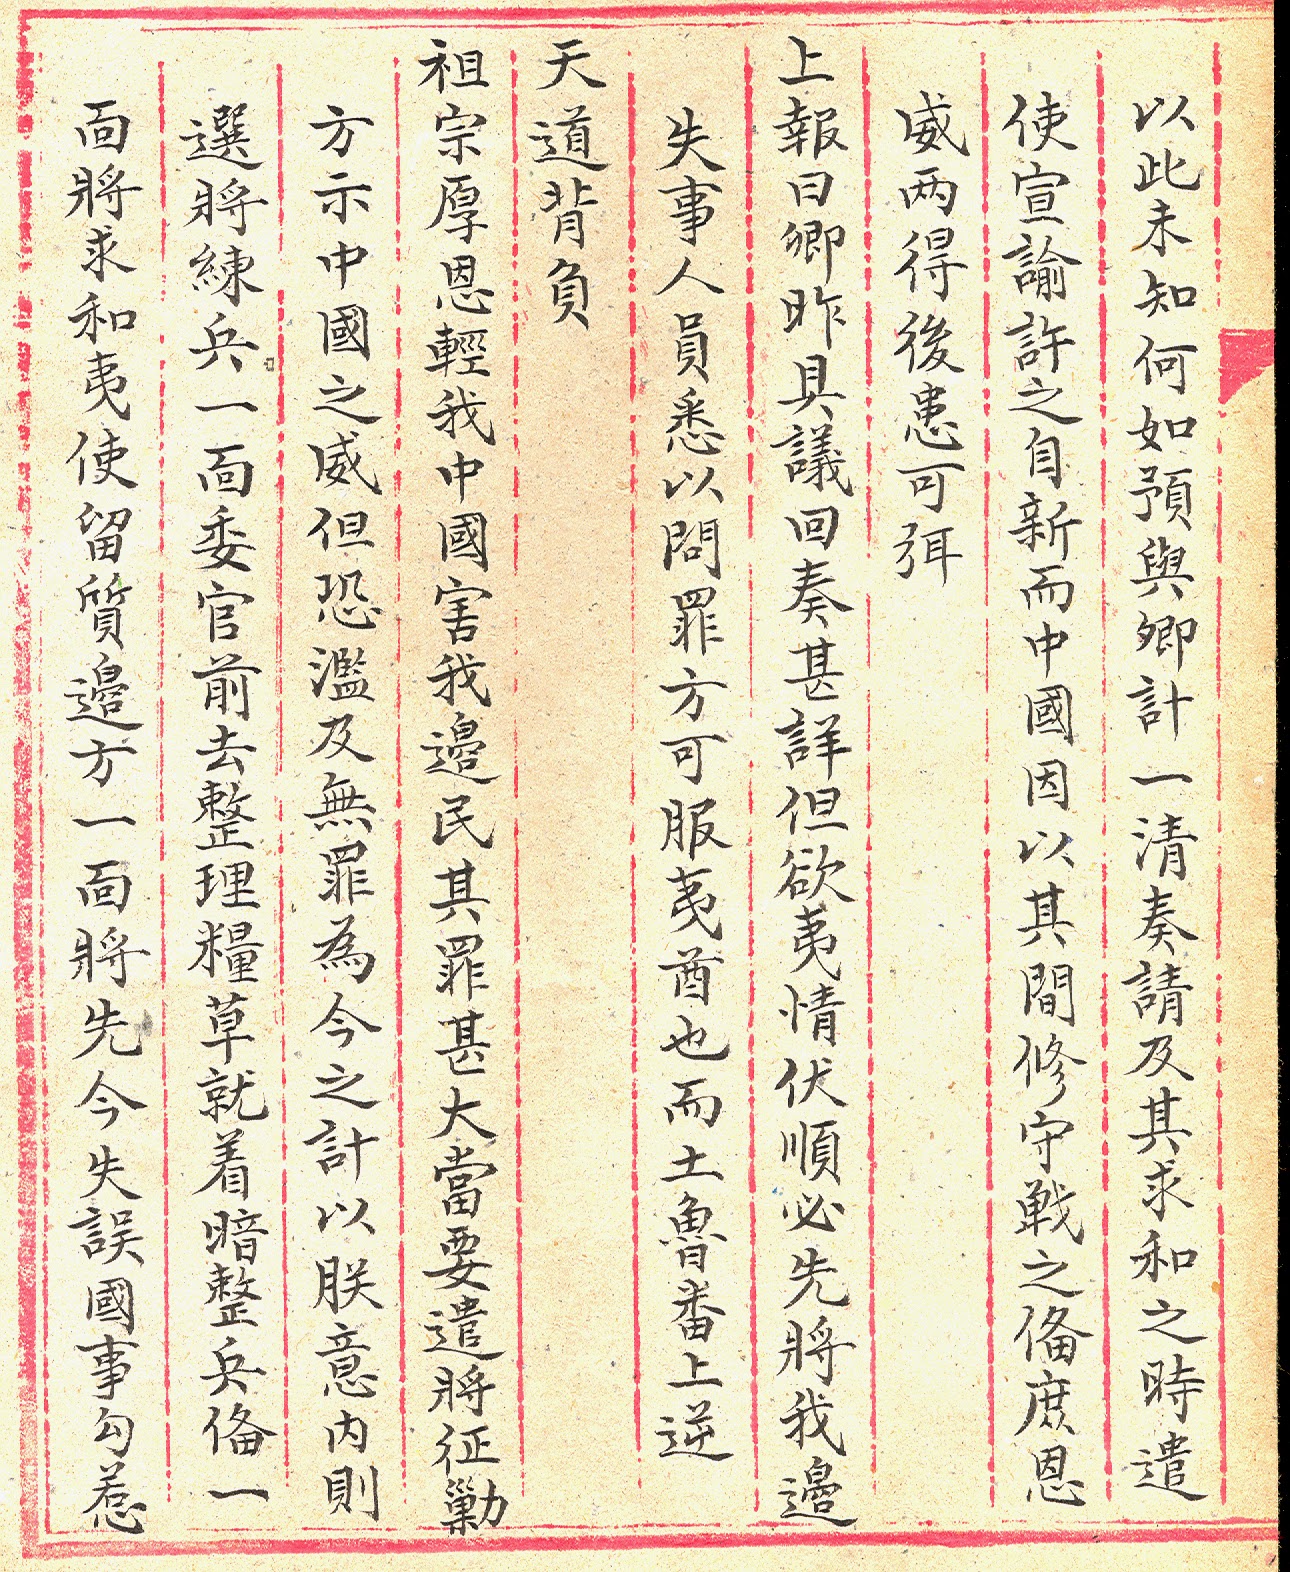 以此未知何如預與卿計一清奏請及其求和之時遣
使宣諭許之自新而中國因以其間修守戰之俻庶恩
威两得後患可弭
上報曰卿昨具議回奏甚詳但欲夷情伏順必先將我邊
失事人員悉以問罪方可服夷酋也而土魯番上逆
天道背負
祖宗厚恩輕我中國害我邊民其罪甚大當要遣將征勦
方示中國之威但恐濫及無罪為今之計以朕意内則
選將練兵一面委官前去整理糧草就着暗整兵俻一
面將求和夷使留質邊方一面將先今失誤國事勾惹